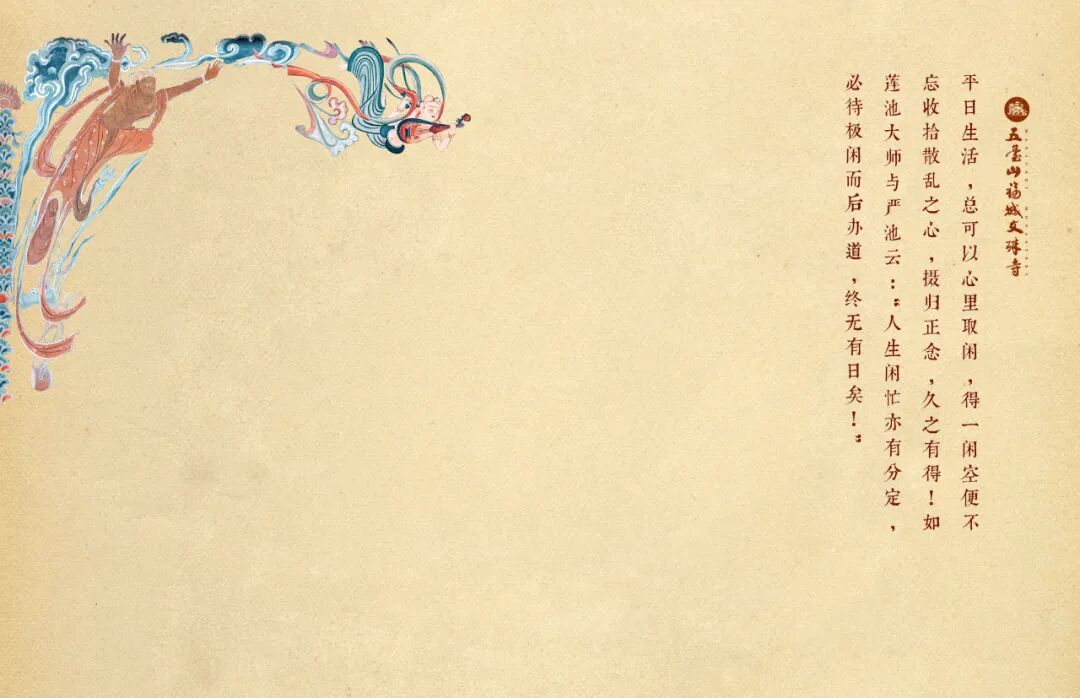 五台山福城文殊寺
平日生活，总可以心里取闲，得一闲空便不
忘收拾散乱之心，摄归正念，久之有得！如
莲池大师与严池云：“人生闲忙亦有分定，
必待极闲而后办道，终无有日矣！”